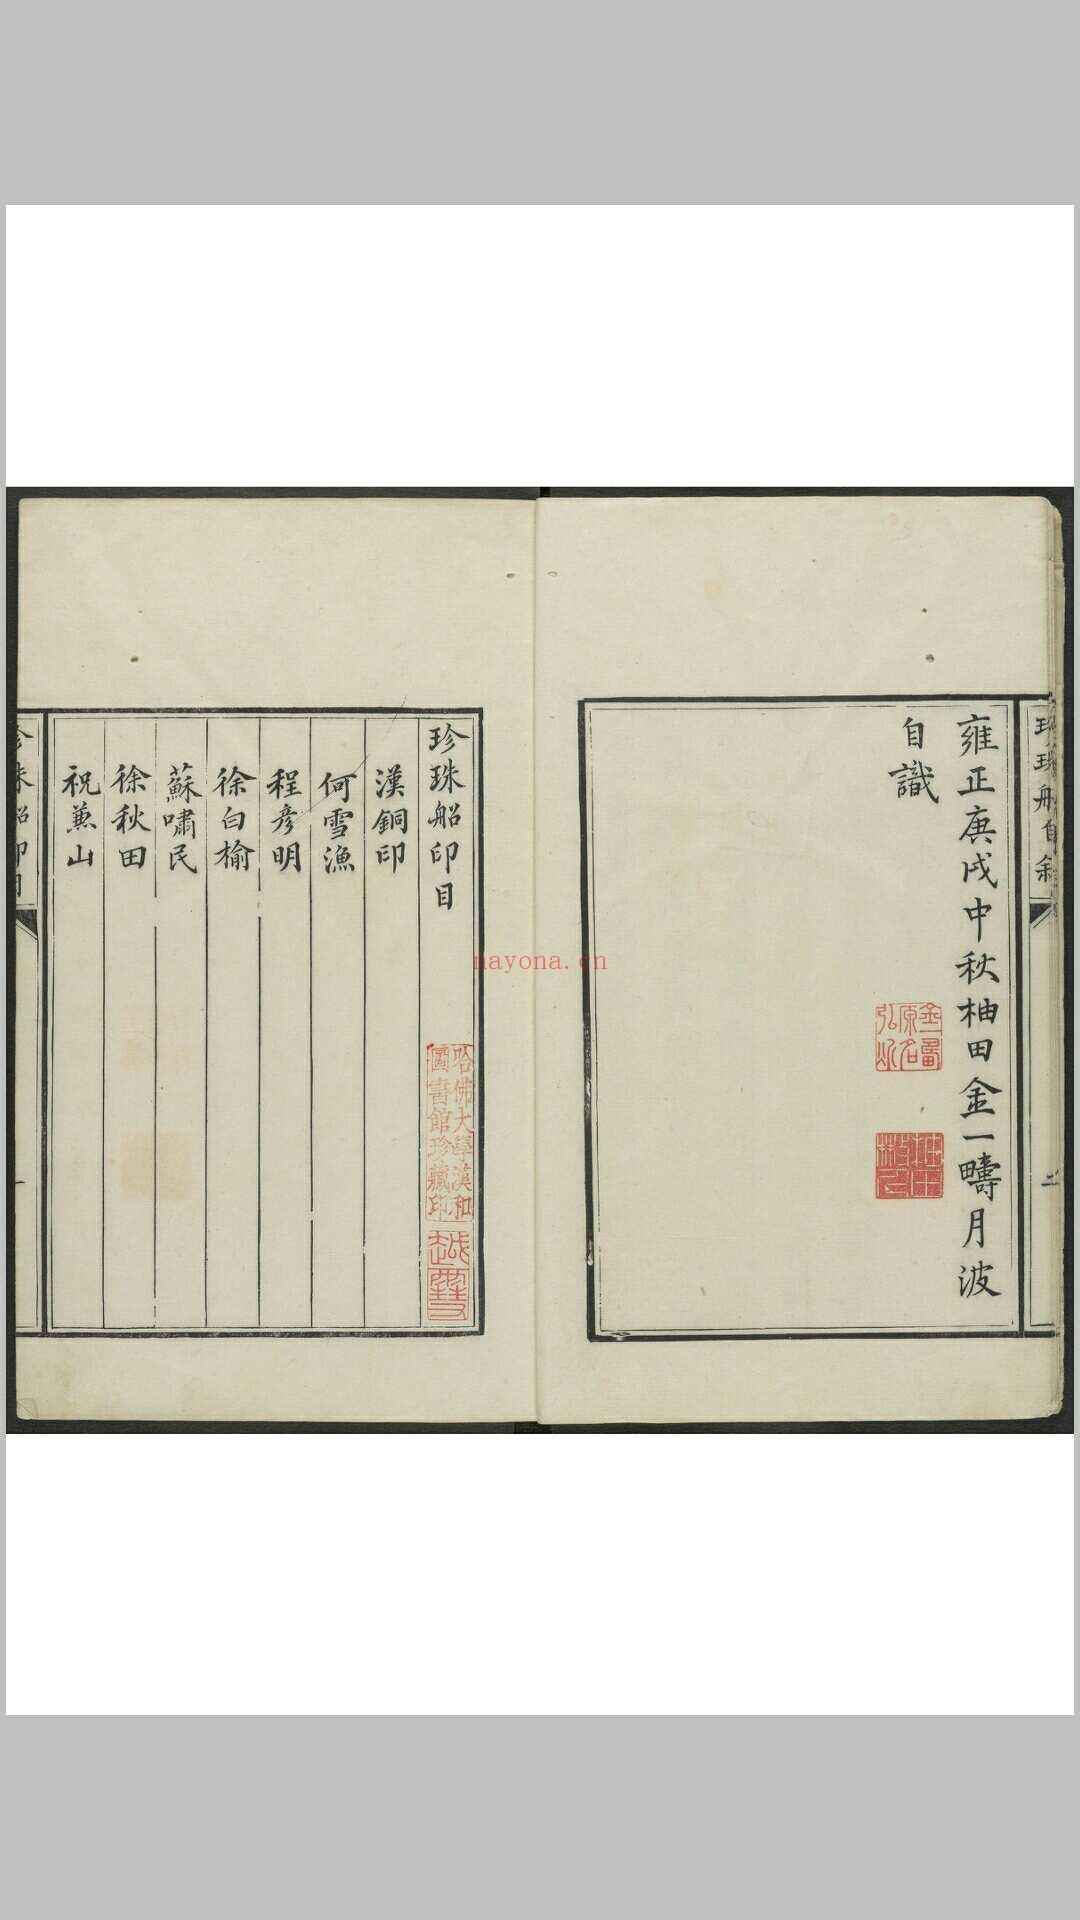 珍珠船自敘
二
雍正庚戌中秋柚田金一疇月波
自識
珍珠船印目
漢銅印
何雪漁
程彥明
徐白榆
蘇嘯民
徐秋田
祝蒹山
珍珠船印目
一
哈佛大學漢和
圖書館珍藏印
nayona.cn